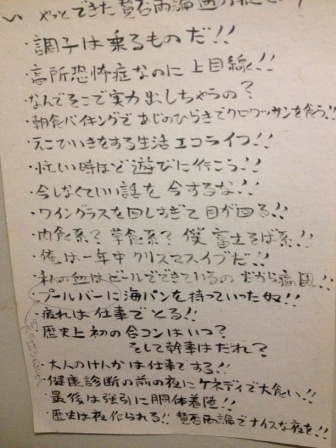 やっとできた賛否両論
・調子は乗るものだ!!
・高所恐怖症なのに上目線!!
・なんでそこで実力出しちゃうの?
・朝食バイキングであじのひらきでクロワッサンを食う!!
・えこでいきをする生活エコライフ!!
・忙しい時ほど遊びに行こう!!
・今しなくていい話を今するな!!
・ワイングラスを回しすぎて目が回る!!
・肉食系?草食系?僕富士そば系!!
・俺は一年中クリスマスイブだ!!
・私の血はビールでできているのだから痛風!!
・プールバーに海パンを持っていった奴!!
・疲れは仕事でとる!!
・歴史上初の合コンはいつ?
そして幹事はだれ?
・大人のけんかは仕事でする!!
・健康診断の前の夜にケネディで大食い!!
・最後は強引に胴体着陸!!
・歴史は夜作られる!!賛否両論でナイスな夜を!!